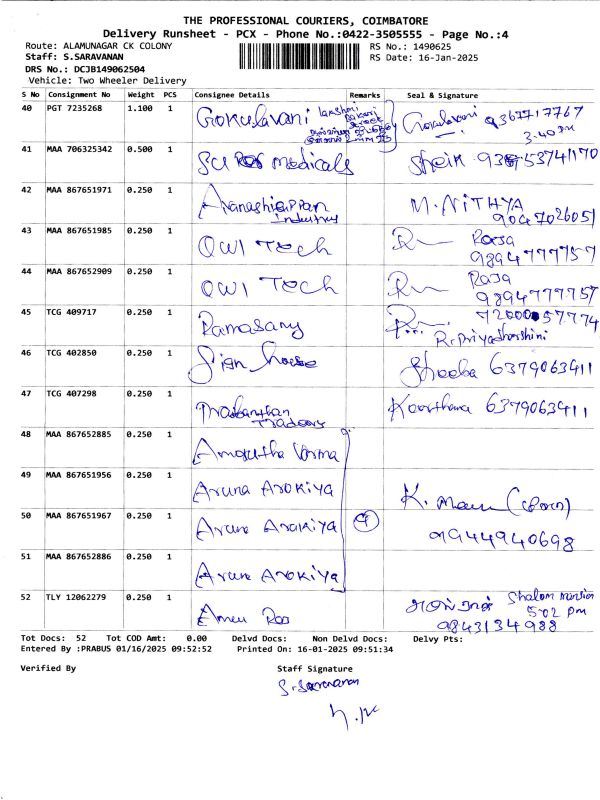 THE PROFESSIONAL COURIERS, COIMBATORE
Delivery Runsheet - PCX - Phone No.:0422-3505555 - Page No.:4
Route: ALAMUNAGAR CK COLONY RS No.: 1490625
Staff: S.SARAVANAN RS Date: 16-Jan-2025
DRS No.: DCJB149062504
Vehicle: Two Wheeler Delivery
S No Consignment No Weight PCS Consignee Details Remarks Seal & Signature
40 PGT 7235268 1.100 1 Gokulavani Gokulavani 9367717767
3.40 PM
41 MAA 706325342 0.500 1 Medicals
42 MAA 867651971 0.250 1 M. NITHYA
industry 9047026051
43 MAA 867651985 0.250 1 OWI Tech Raja
9894777757
44 MAA 867652909 0.250 1 OWI Tech Raja
9894777757
45 TCG 409717 0.250 1 Ramasamy
R. Priyadharshini
46 TCG 402850 0.250 1 Sign house Sheeba 6379063411
47 TCG 407298 0.250 1 Prabanthan Keerthana 6379063411
Traders
48 MAA 867652885 0.250 1 Amrutha Varma
49 MAA 867651956 0.250 1 Aruna Arokiya
50 MAA 867651967 0.250 1 Aruna Arokiya 4 K.
9944940698
51 MAA 867652886 0.250 1 Aruna Arokiya
52 TLY 12062279 0.250 1 Rao Shalom
5:02 pm
9843134988
Tot Docs: 52 Tot COD Amt: 0.00 Delvd Docs: Non Delvd Docs: Delvy Pts:
Entered By :PRABUS 01/16/2025 09:52:52 Printed On: 16-01-2025 09:51:34
Verified By Staff Signature
S. Saravanan